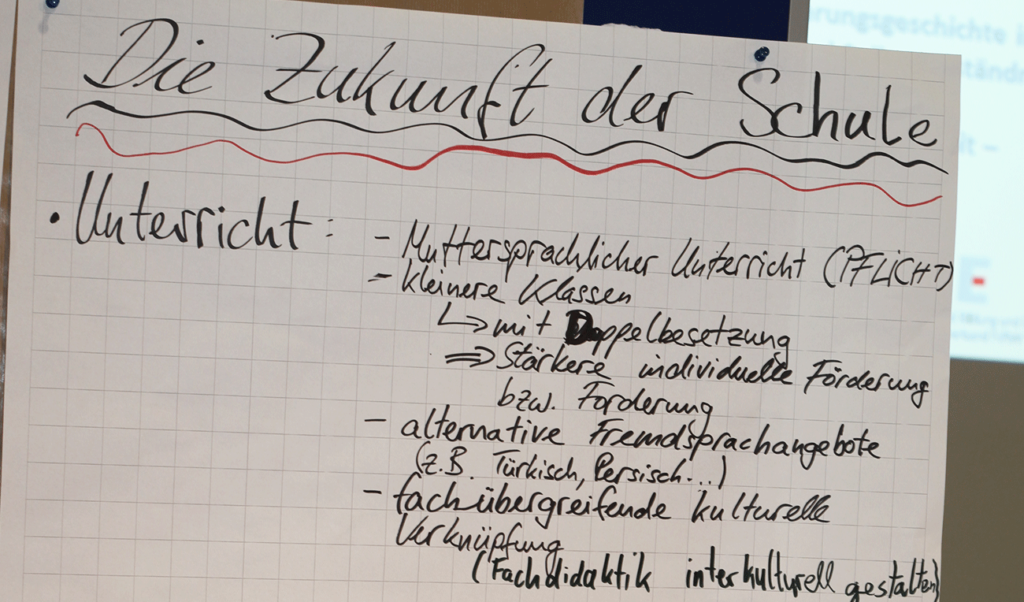 Die Zukunft der Schule
• Unterricht: - Muttersprachlicher Unterricht (PFLICHT)
- kleinere Klassen
↳ mit Doppelbesetzung
⇒ Stärkere individuelle Förderung
bzw. Forderung
- alternative Fremdsprachangebote
(z.B. Türkisch, Persisch...)
- fachübergreifende kulturelle
Verknüpfung
(Fachdidaktik interkulturell gestalten)
rungsgeschichte i
ständn
it –